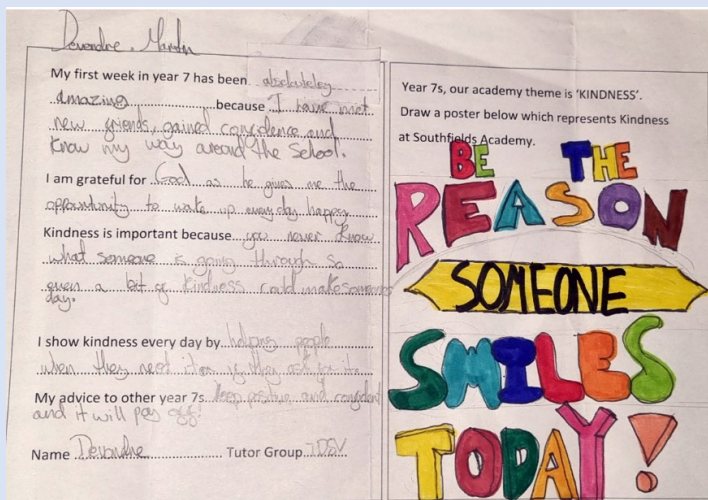 Devendre Martin
My first week in year 7 has been absolutely
amazing because I have met
new friends, gained confidence and
know my way around the school.
I am grateful for God as he gives me the
opportunity to wake up every day happy
Kindness is important because you never know
what someone is going through so
even a bit of kindness could make someones
day.
I show kindness every day by helping people
when they need it or if they ask for it.
My advice to other year 7s keep positive and confident
and it will pay off!
Name Tutor Group 7DSV
Year 7s, our academy theme is 'KINDNESS'.
Draw a poster below which represents Kindness
at Southfields Academy.
BE THE
REASON
SOMEONE
SMILES
TODAY!